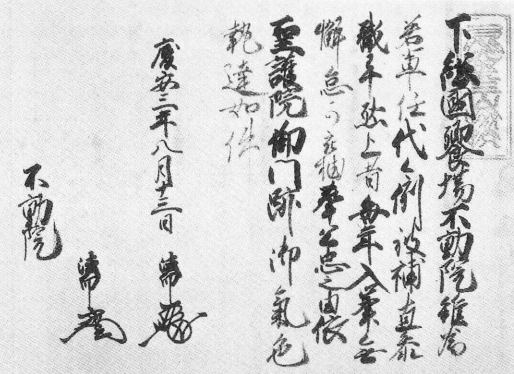 下総國饗場不動院雖為
若輩任代々例被補直参
職 然上者毎年入峯無
懈怠可被抽奉公忠之由依
聖護院御門跡御氣色
執達如件
慶安三年八月十三日
不動院